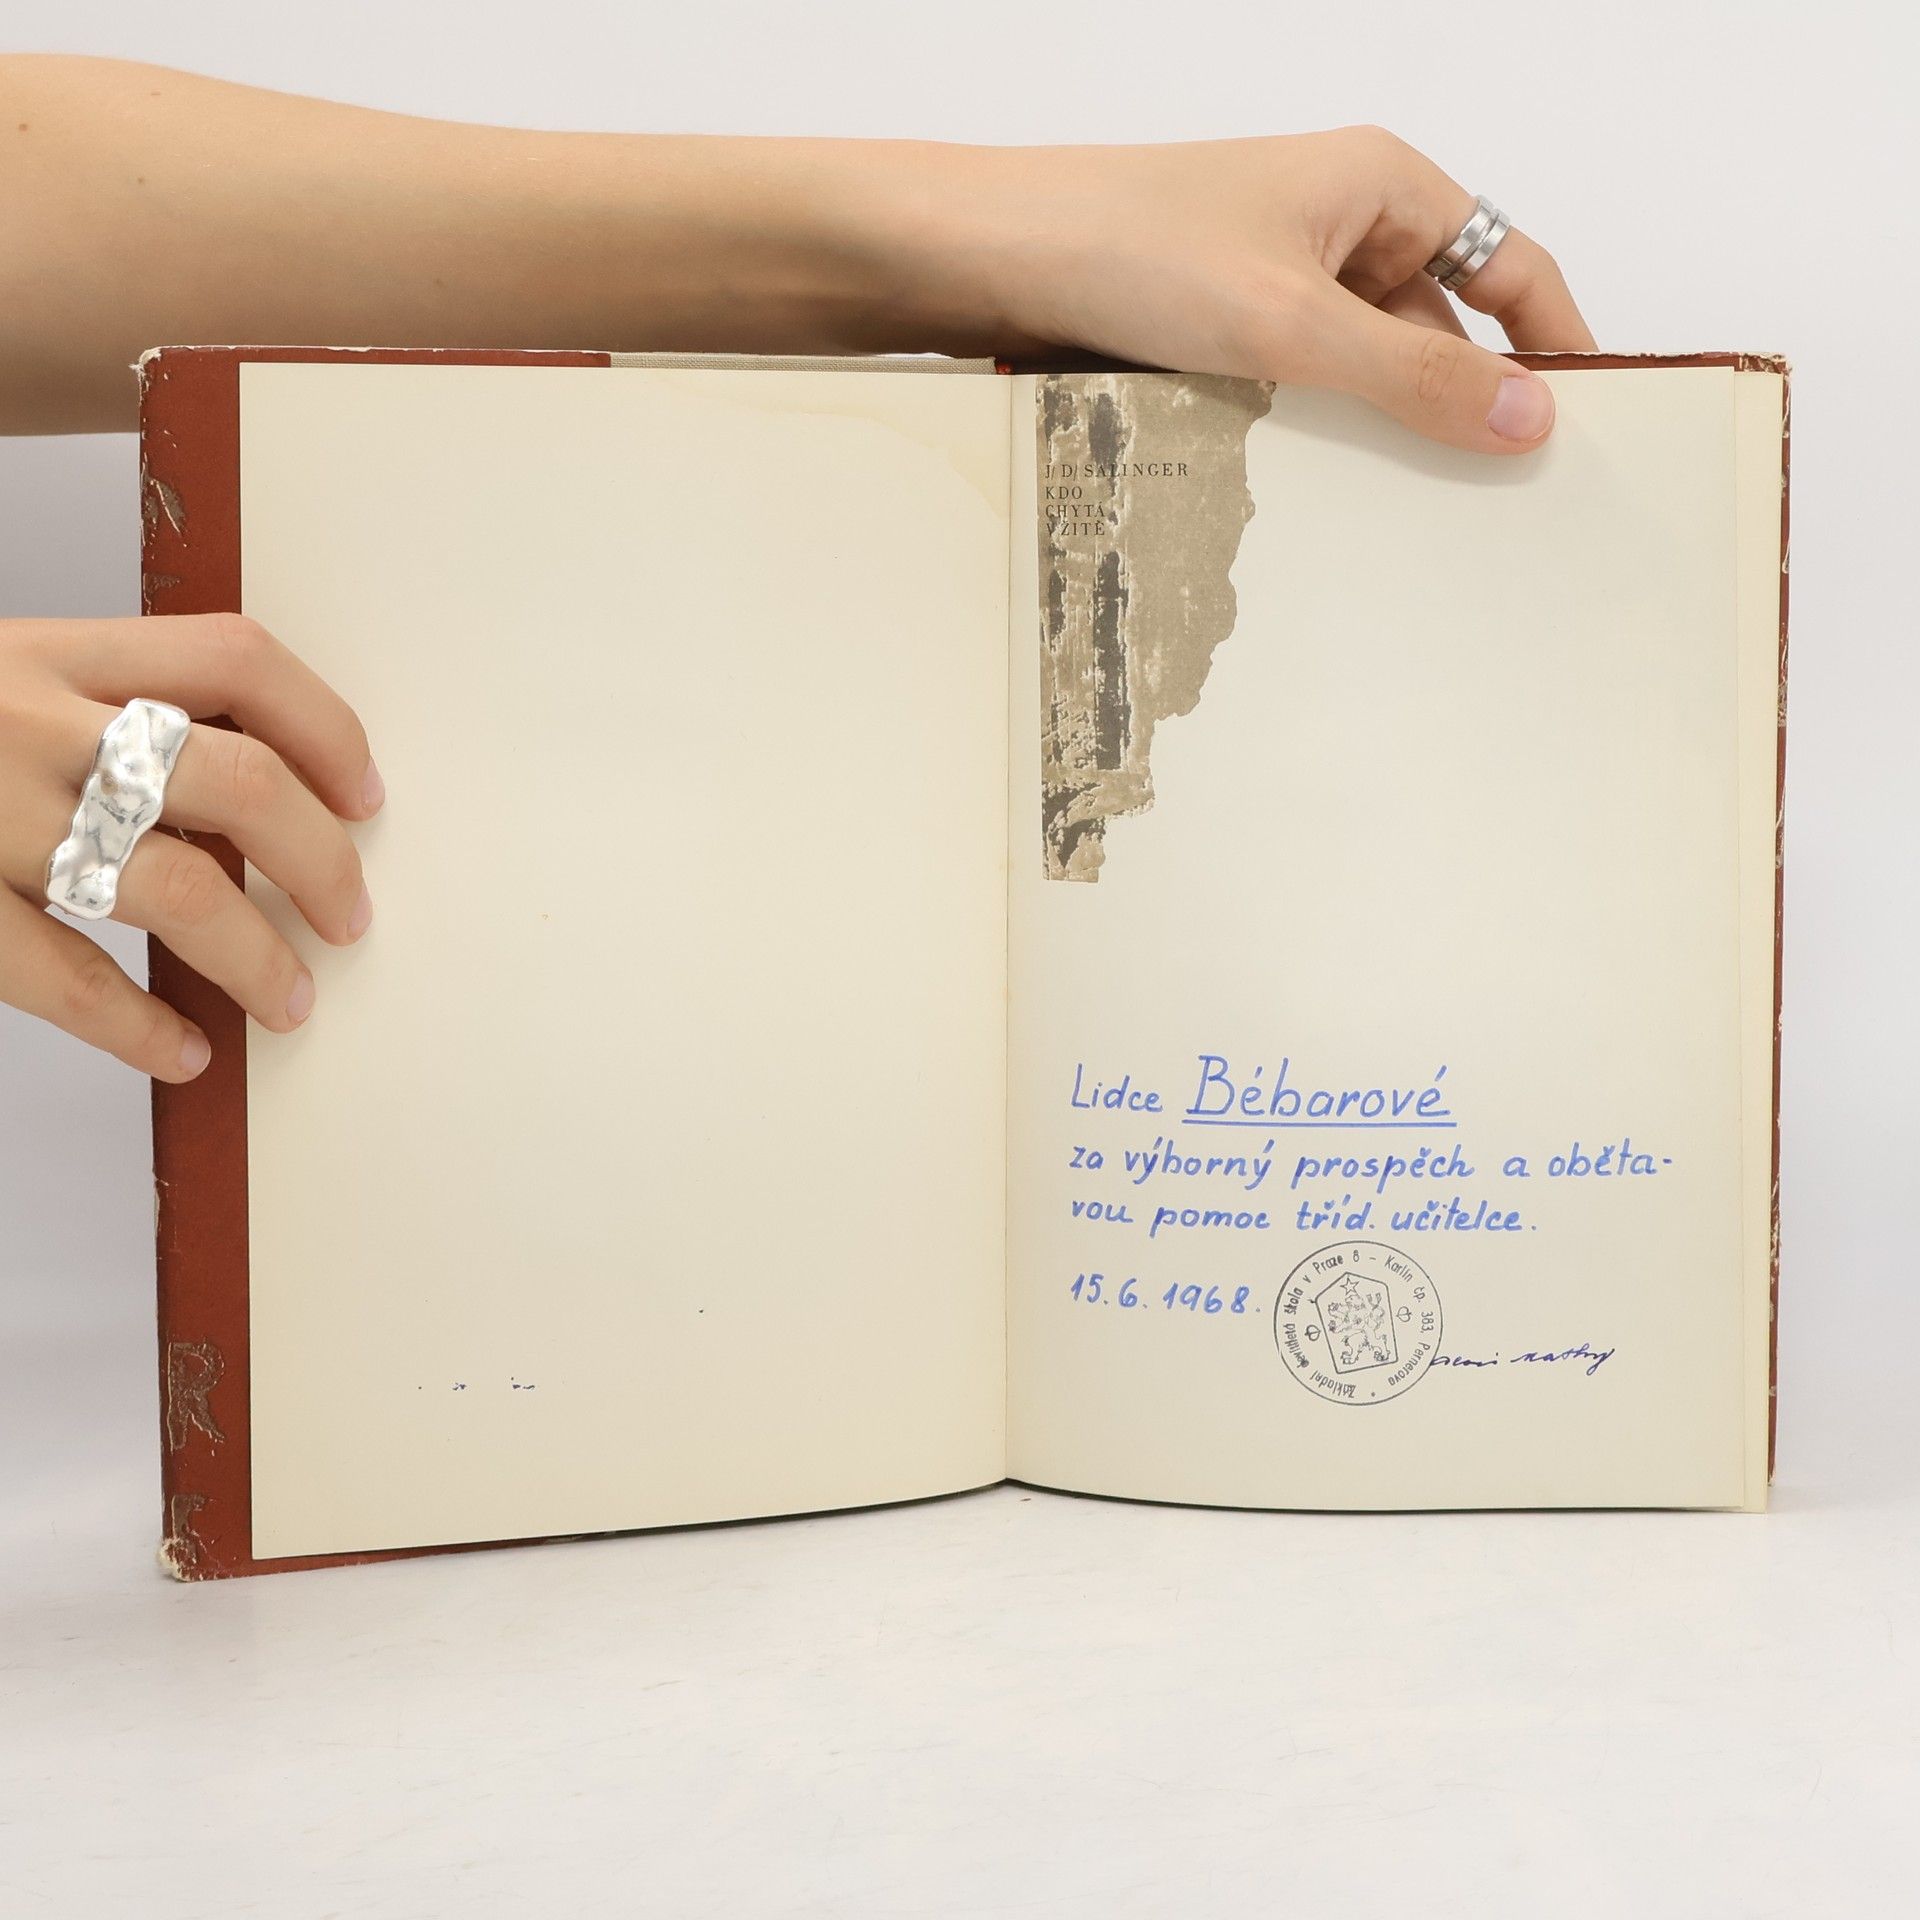 J/ D/ SALINGER
KDO
CHYTÁ
V ŽITĚ
Lidce Bébarové
za výborný prospěch a oběta-
vou pomoc tříd. učitelce.
15. 6. 1968.
Základní devítiletá škola v Praze 8 - Karlín čp. 383, Pernerova